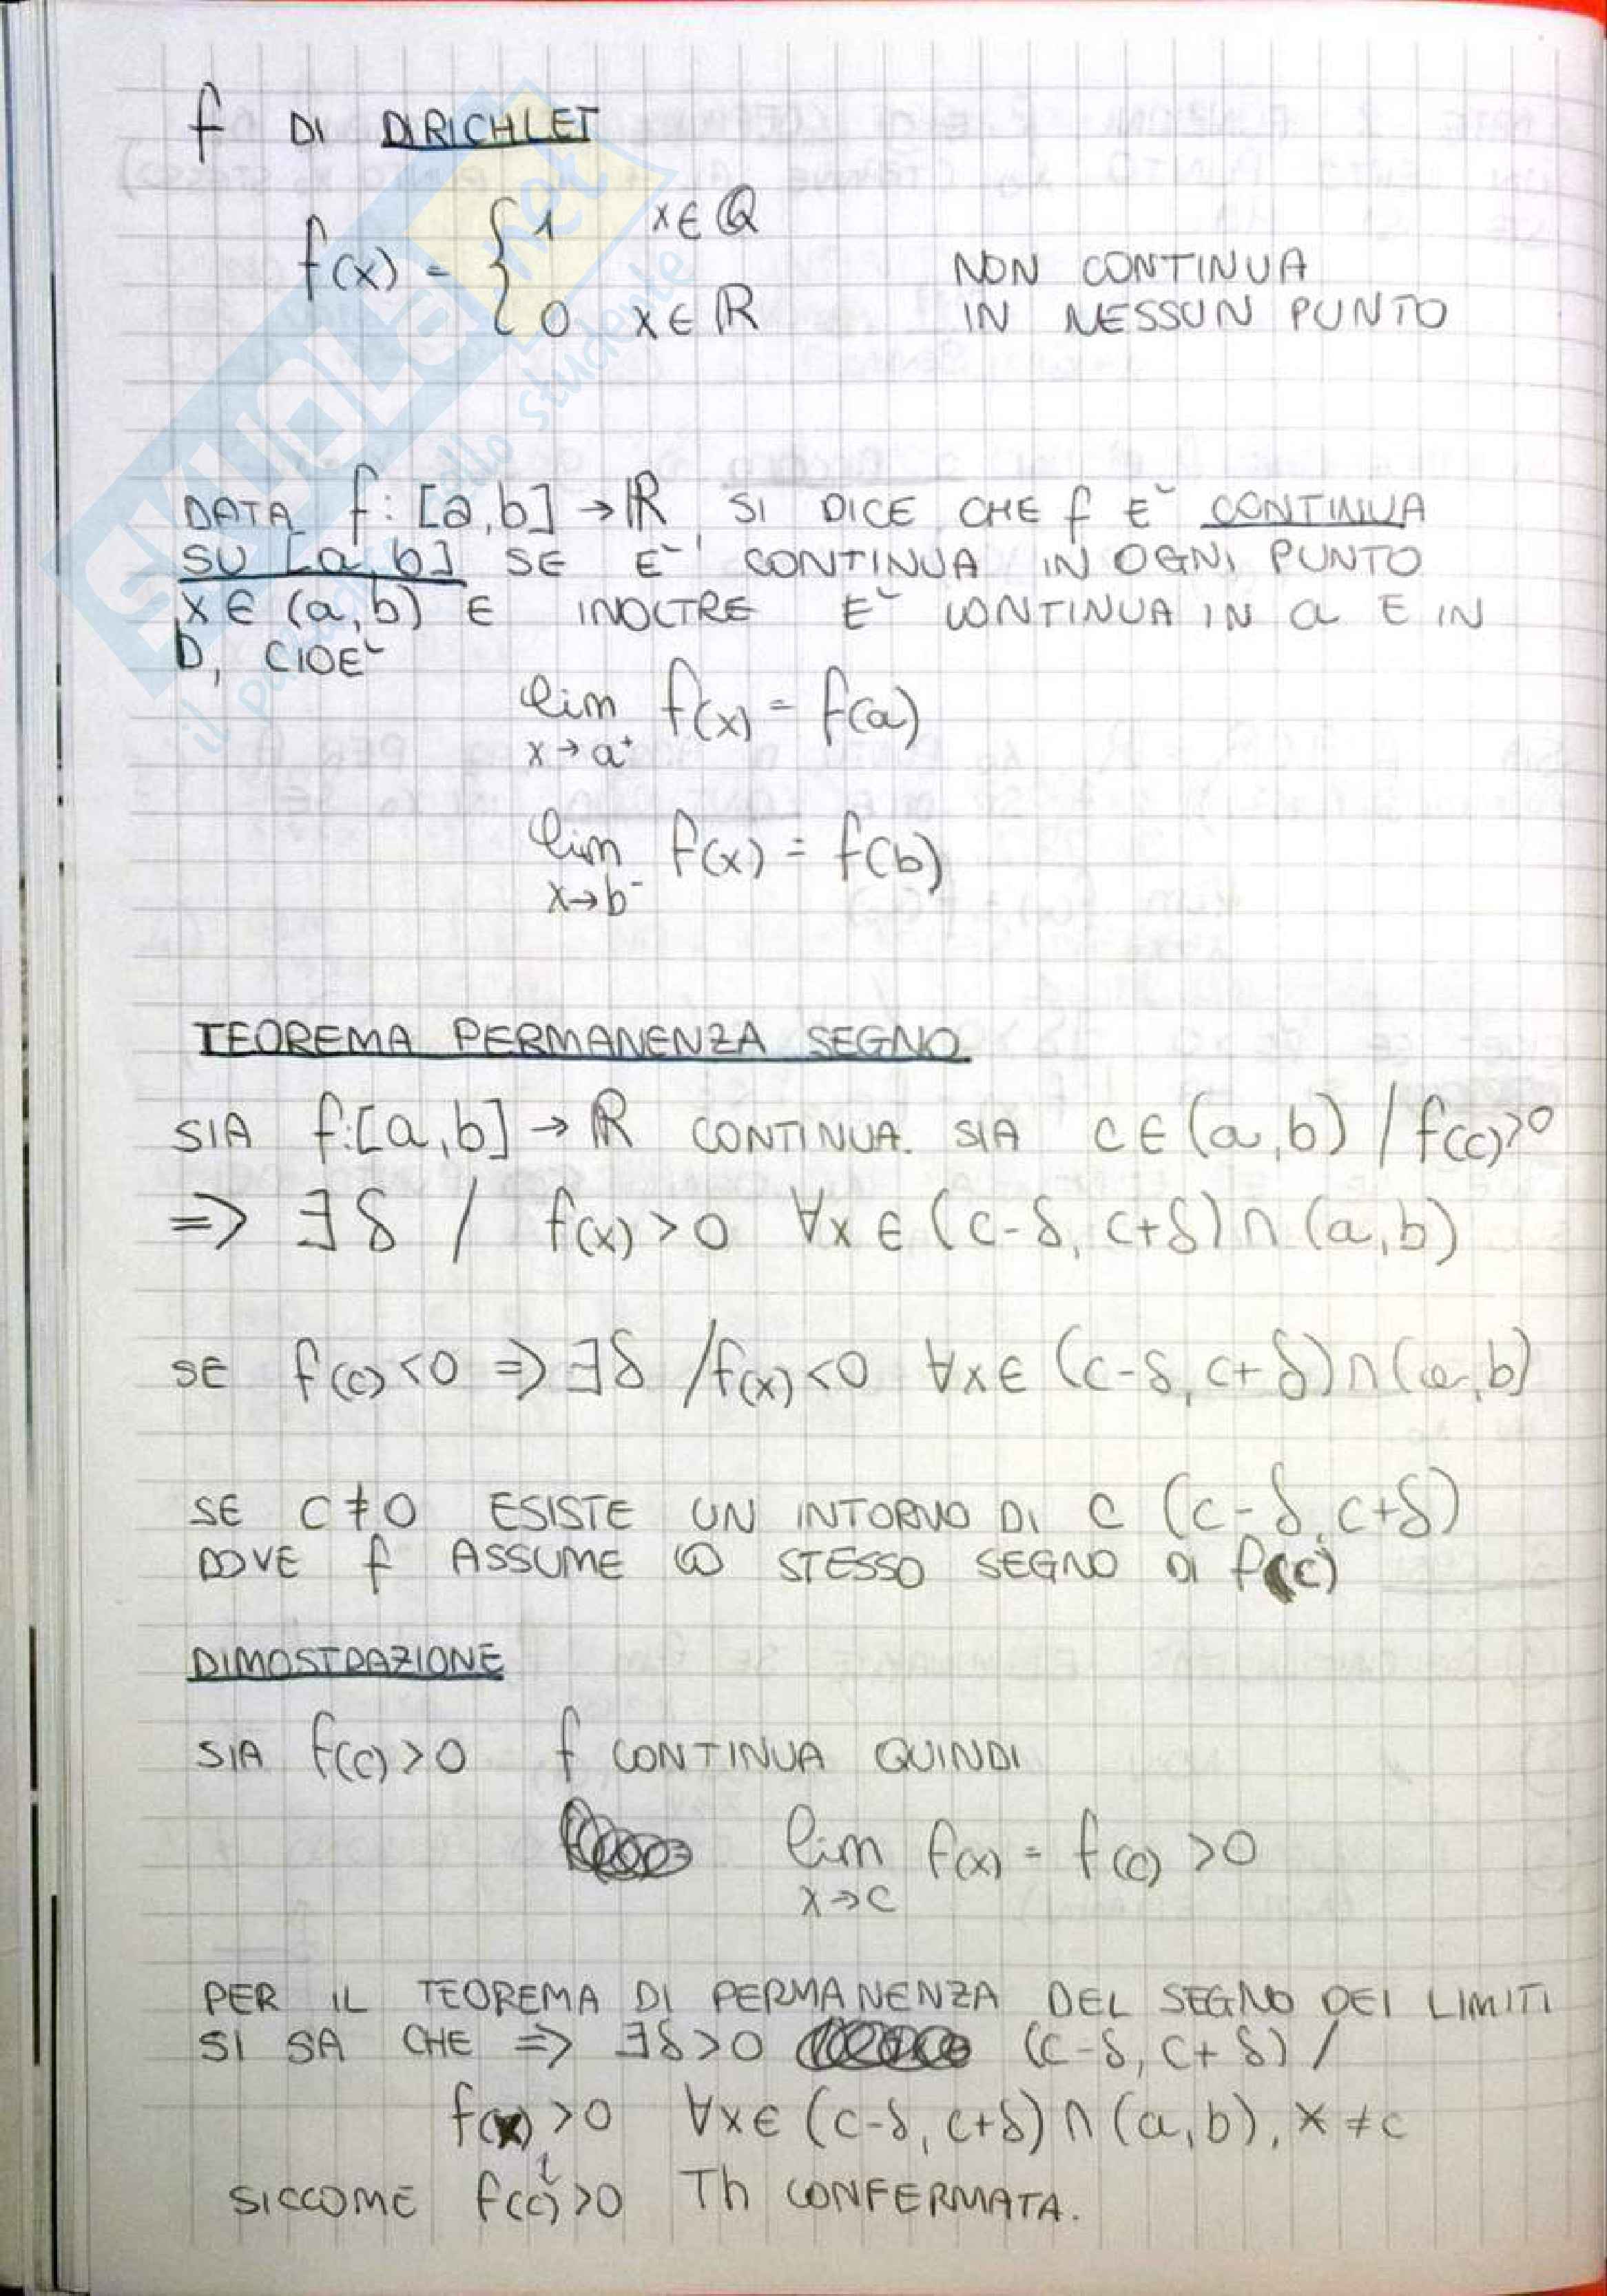 f DI DIRICHLET
f(x) = { 1 x∈ℚ
0 x∈ℝ
NON CONTINUA
IN NESSUN PUNTO
DATA f: [a,b] → ℝ, SI DICE CHE f E` CONTINUA
SU [a,b] SE E` CONTINUA IN OGNI PUNTO
x∈(a,b) E INOLTRE E` CONTINUA IN a E IN
b, CIOE`
lim f(x) = f(a)
x→a⁺
lim f(x) = f(b)
x→b⁻
TEOREMA PERMANENZA SEGNO
SIA f:[a,b] → ℝ CONTINUA. SIA c∈(a,b) / f(c)>0
=> ∃δ / f(x)>0 ∀x∈(c-δ, c+δ)∩(a,b)
SE f(c)<0 => ∃δ /f(x)<0 ∀x∈(c-δ, c+δ)∩(a,b)
SE c≠0 ESISTE UN INTORNO DI c (c-δ, c+δ)
DOVE f ASSUME LO STESSO SEGNO DI f(c)
DIMOSTRAZIONE
SIA f(c)>0 f CONTINUA QUINDI
lim f(x) = f(c) >0
x→c
PER IL TEOREMA DI PERMANENZA DEL SEGNO DEI LIMITI
SI SA CHE => ∃δ>0 (c-δ, c+δ) /
f(x)>0 ∀x∈(c-δ, c+δ)∩(a,b), x≠c
SICCOME f(c)>0 Th CONFERMATA.
SKUOLA.net
il paradiso dello studente